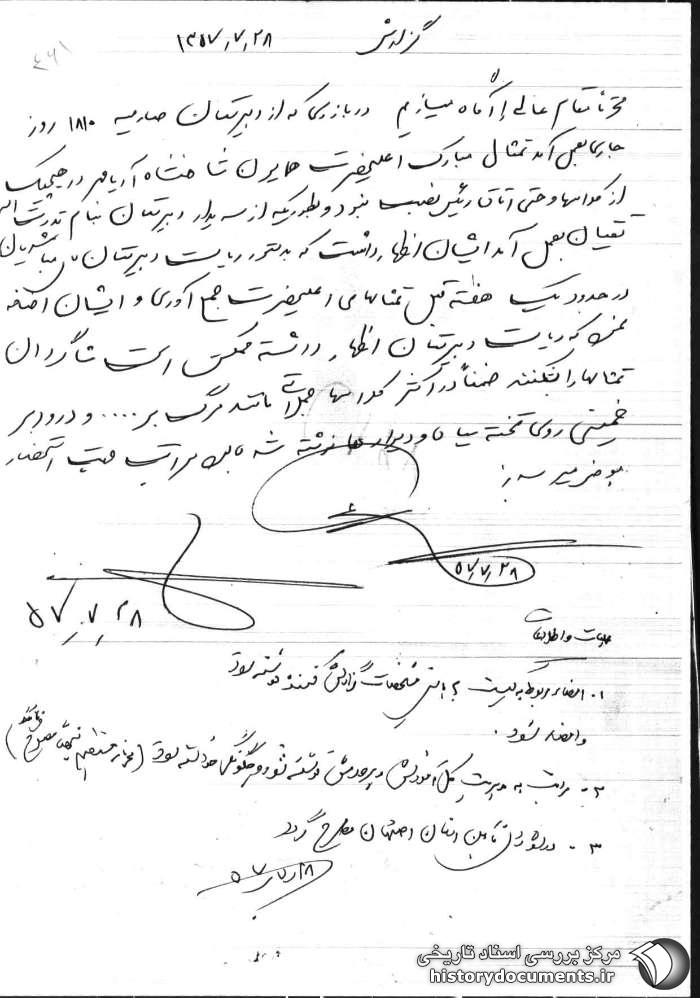 گزارش ۱۳۵۷٫۷٫۲۸
۴۶۱
محترماً مقام عالی را آگاه میسازیم در بازرسی که از دبیرستان صارمیه ۱۸۱۰ روز
جاری بعمل آمد تمثال مبارک اعلیحضرت همایون شاهنشاه آریامهر در هیچیک
از کلاسها و حتی اتاق رئیس نصب نبود و بطوریکه از سرایدار دبیرستان بنام قدرت اله
تحقیقات بعمل آمد ایشان اظهار داشت که بدستور ریاست دبیرستان
در حدود یک هفته قبل تمثالهای اعلیحضرت جمع آوری و ایشان اضافه
نمود که ریاست دبیرستان اظهار داشته ممکن است شاگردان
تمثالها را بشکنند ضمناً در اکثر کلاسها جملاتی مانند مرگ بر .... و درود بر
خمینی روی تخته سیاه و دیوارها نوشته شده بالا مراتب جهت استحضار
بعرض میرسد:
۵۷٫۷٫۲۸
۵۷٫۷٫۲۸
عملیات و اطلاعات
۱- امضاء مربوط به کیست بایستی مشخصات گزارش کننده نوشته شود
و امضاء شود.
۲- مراتب به مدیریت کل آموزش و پرورش نوشته شود و چگونگی خواسته شود
۳- در شورای تأمین استان اصفهان مطرح گردد
۵۷٫۷٫۲۸
مرکز بررسی اسناد تاریخی
historydocuments.ir